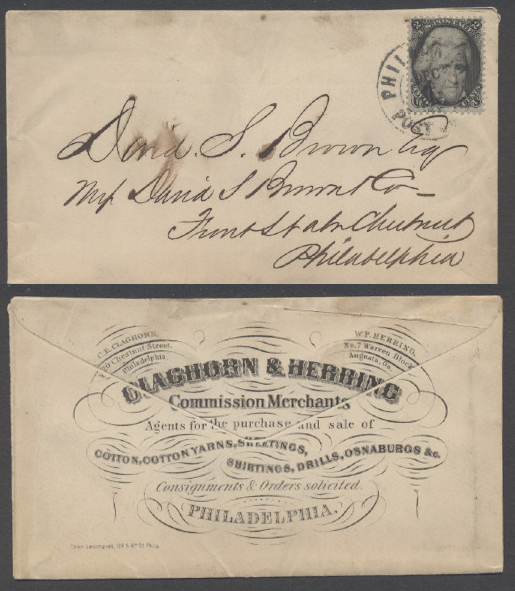 PHILA
DEC
POST
U.S. POSTAGE
David S. Brown Esq
Mess David S Brown & Co
Front St abv Chestnut
Philadelphia
C.E. CLAGHORN,
Chestnut Street,
Philadelphia
W.P. HERRING,
No. 7 Warren Block
Augusta, Ga.
CLAGHORN & HERRING
Commission Merchants
Agents for the purchase and sale of
COTTON, COTTON YARNS, SHEETINGS,
SHIRTINGS, DRILLS, OSNABURGS &c.
Consignments & Orders solicited.
PHILADELPHIA.